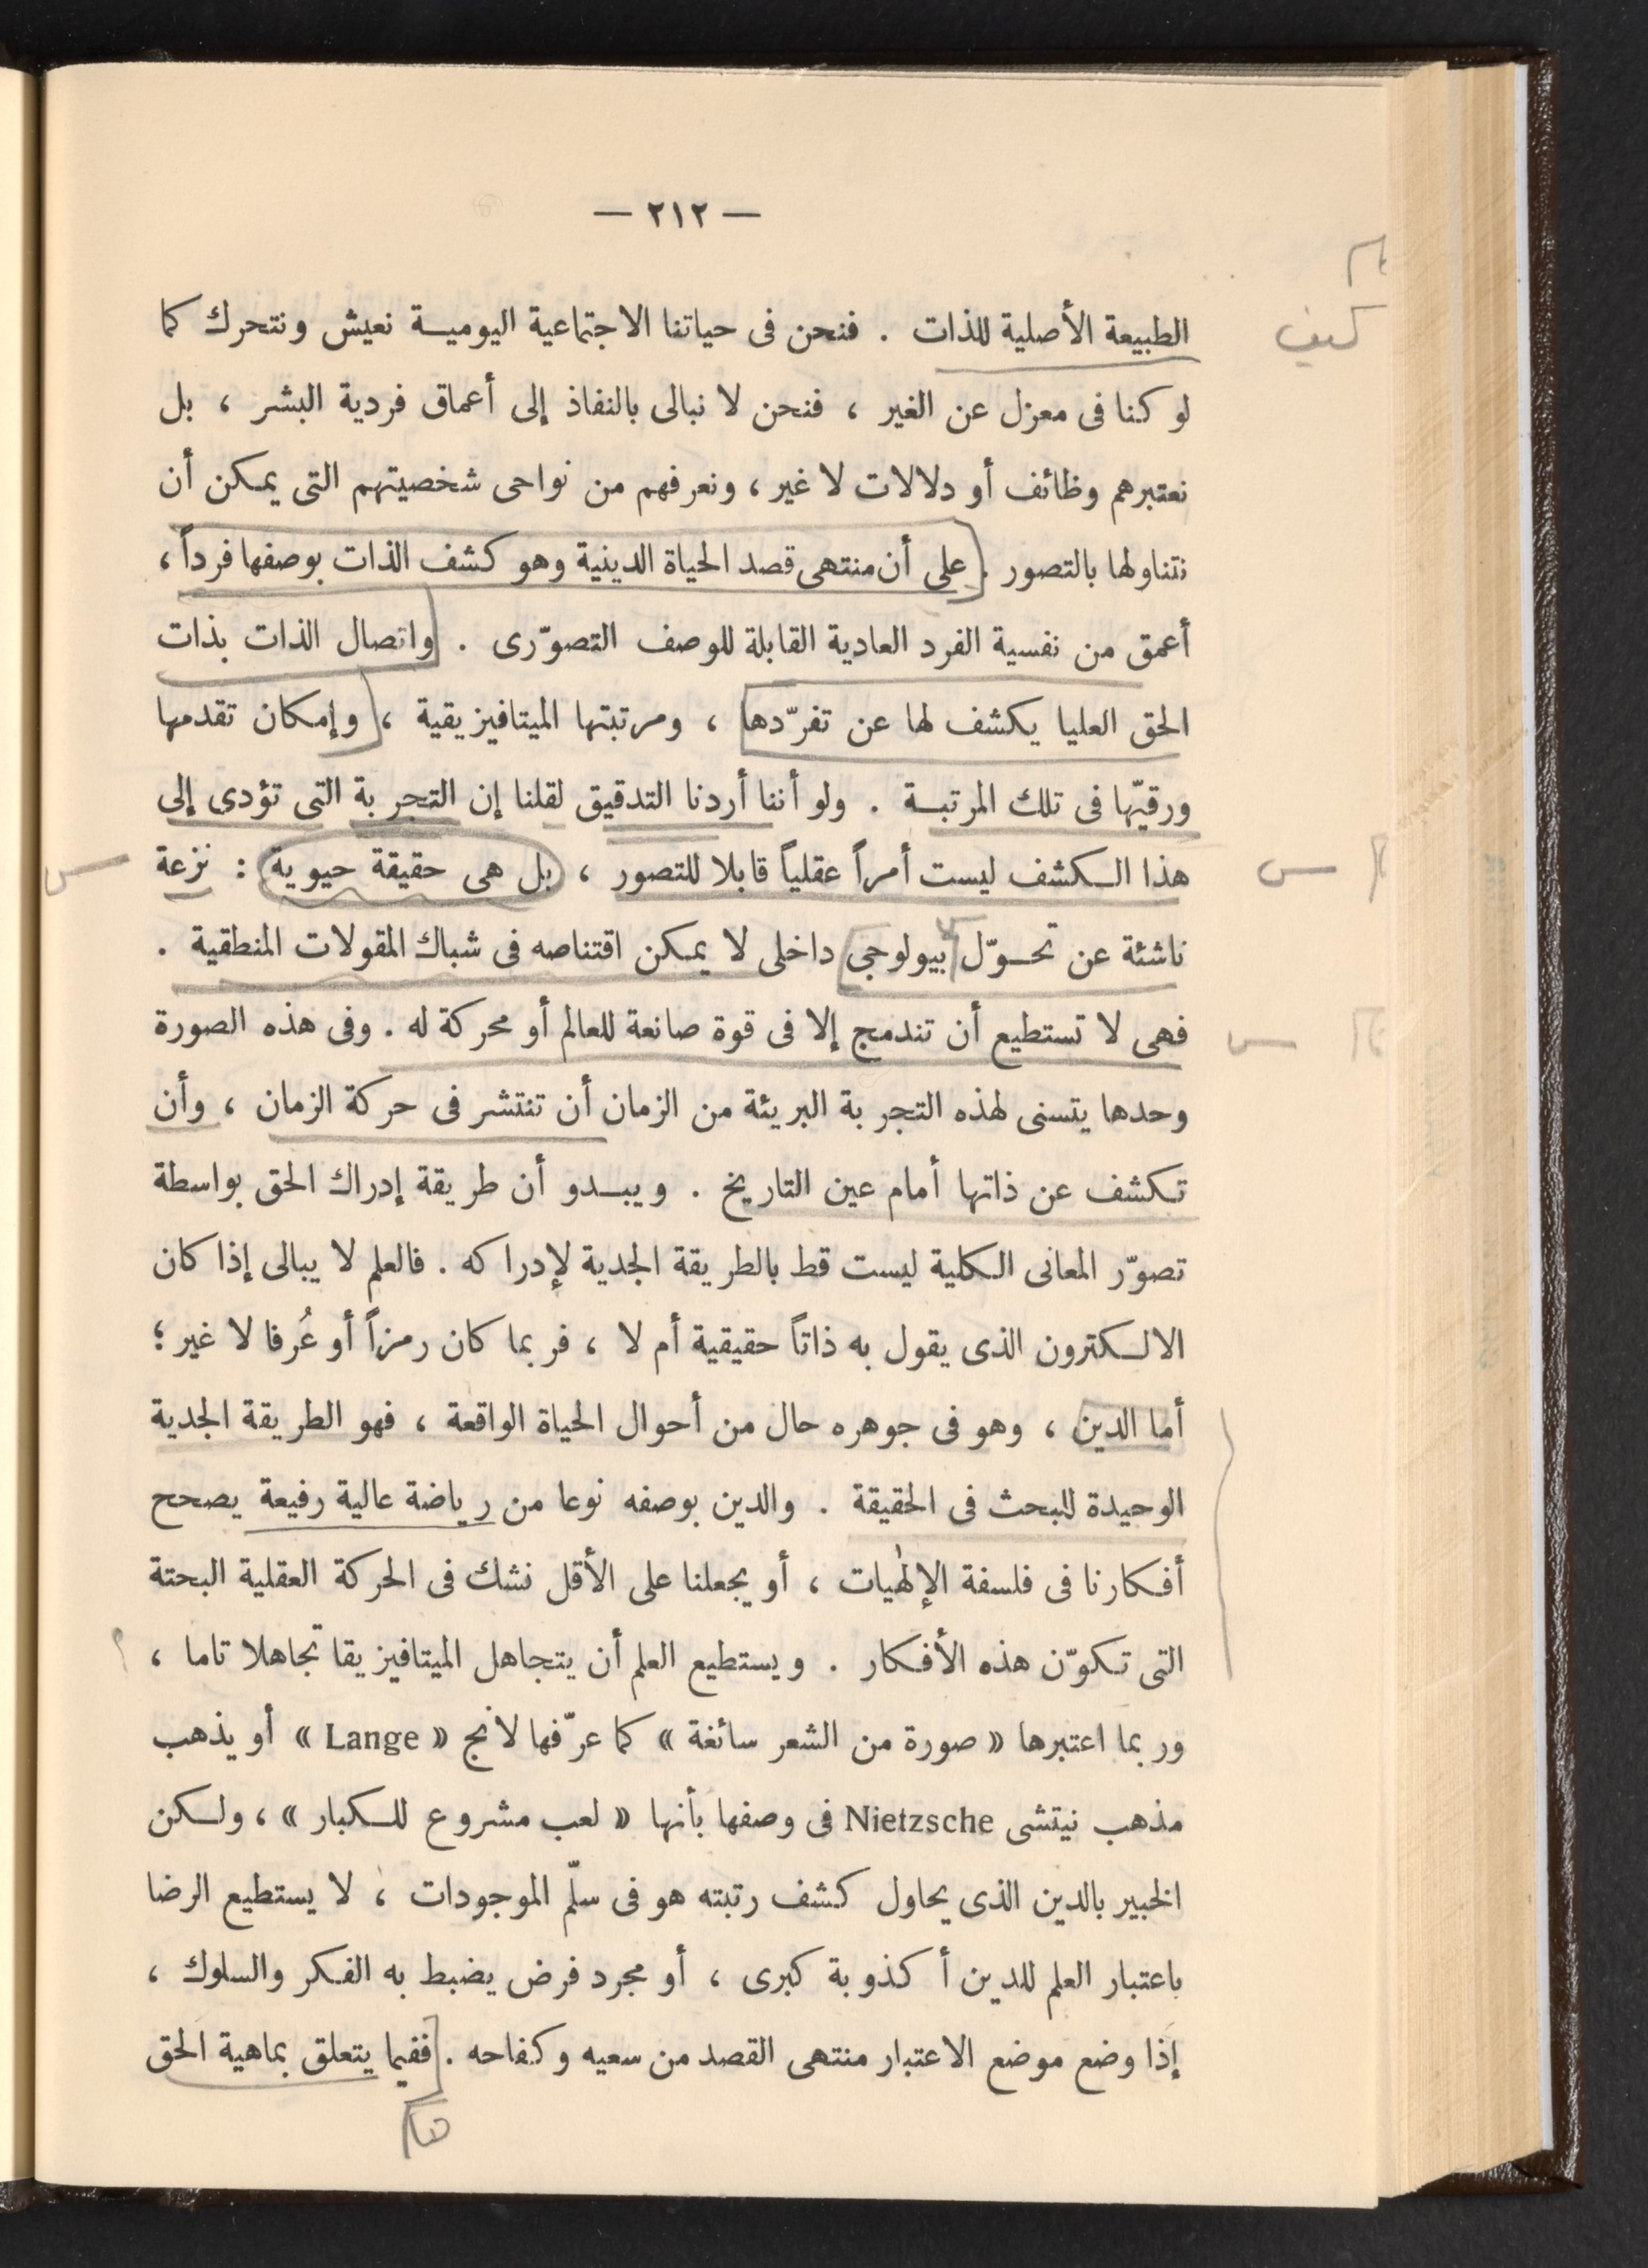 — ٢١٢ —
الطبيعة الأصلية للذات . فنحن فى حياتنا الاجتماعية اليومية نعيش ونتحرك كما
كيف
لو كنا فى معزل عن الغير ، فنحن لا نبالى بالنفاذ إلى أعماق فردية البشر ، بل
نعتبرهم وظائف أو دلالات لا غير ، ونعرفهم من نواحى شخصيتهم التى يمكن أن
نتناولها بالتصور . على أن منتهى قصد الحياة الدينية وهو كشف الذات بوصفها فرداً ،
أعمق من نفسية الفرد العادية القابلة للوصف التصوّرى . واتصال الذات بذات
الحق العليا يكشف لها عن تفرّدها ، ومرتبتها الميتافيزيقية ، وإمكان تقدمها
ورقيّها فى تلك المرتبة . ولو أننا أردنا التدقيق لقلنا إن التجربة التى تؤدى إلى
هذا الكشف ليست أمراً عقلياً قابلا للتصور ، بل هى حقيقة حيوية : نزعة
ناشئة عن تحوّل بيولوجى داخلى لا يمكن اقتناصه فى شباك المقولات المنطقية .
فهى لا تستطيع أن تندمج إلا فى قوة صانعة للعالم أو محركة له . وفى هذه الصورة
وحدها يتسنى لهذه التجربة البريئة من الزمان أن تنتشر فى حركة الزمان ، وأن
تكشف عن ذاتها أمام عين التاريخ . ويبدو أن طريقة إدراك الحق بواسطة
تصوّر المعانى الكلية ليست قط بالطريقة الجدية لإدراكه . فالعلم لا يبالى إذا كان
الالكترون الذى يقول به ذاتاً حقيقية أم لا ، فربما كان رمزاً أو عُرفا لا غير ؛
أما الدين ، وهو فى جوهره حال من أحوال الحياة الواقعة ، فهو الطريقة الجدية
الوحيدة للبحث فى الحقيقة . والدين بوصفه نوعا من رياضة عالية رفيعة يصحح
أفكارنا فى فلسفة الإلٰهيات ، أو يجعلنا على الأقل نشك فى الحركة العقلية البحتة
التى تكوّن هذه الأفكار . ويستطيع العلم أن يتجاهل الميتافيزيقا تجاهلا تاما ،
وربما اعتبرها « صورة من الشعر سائغة » كما عرّفها لانج « Lange » أو يذهب
مذهب نيتشى Nietzsche فى وصفها بأنها « لعب مشروع للكبار » ، ولكن
الخبير بالدين الذى يحاول كشف رتبته هو فى سلّم الموجودات ، لا يستطيع الرضا
باعتبار العلم للدين أكذوبة كبرى ، أو مجرد فرض يضبط به الفكر والسلوك ،
إذا وضع موضع الاعتبار منتهى القصد من سعيه وكفاحه . ففيما يتعلق بماهية الحق